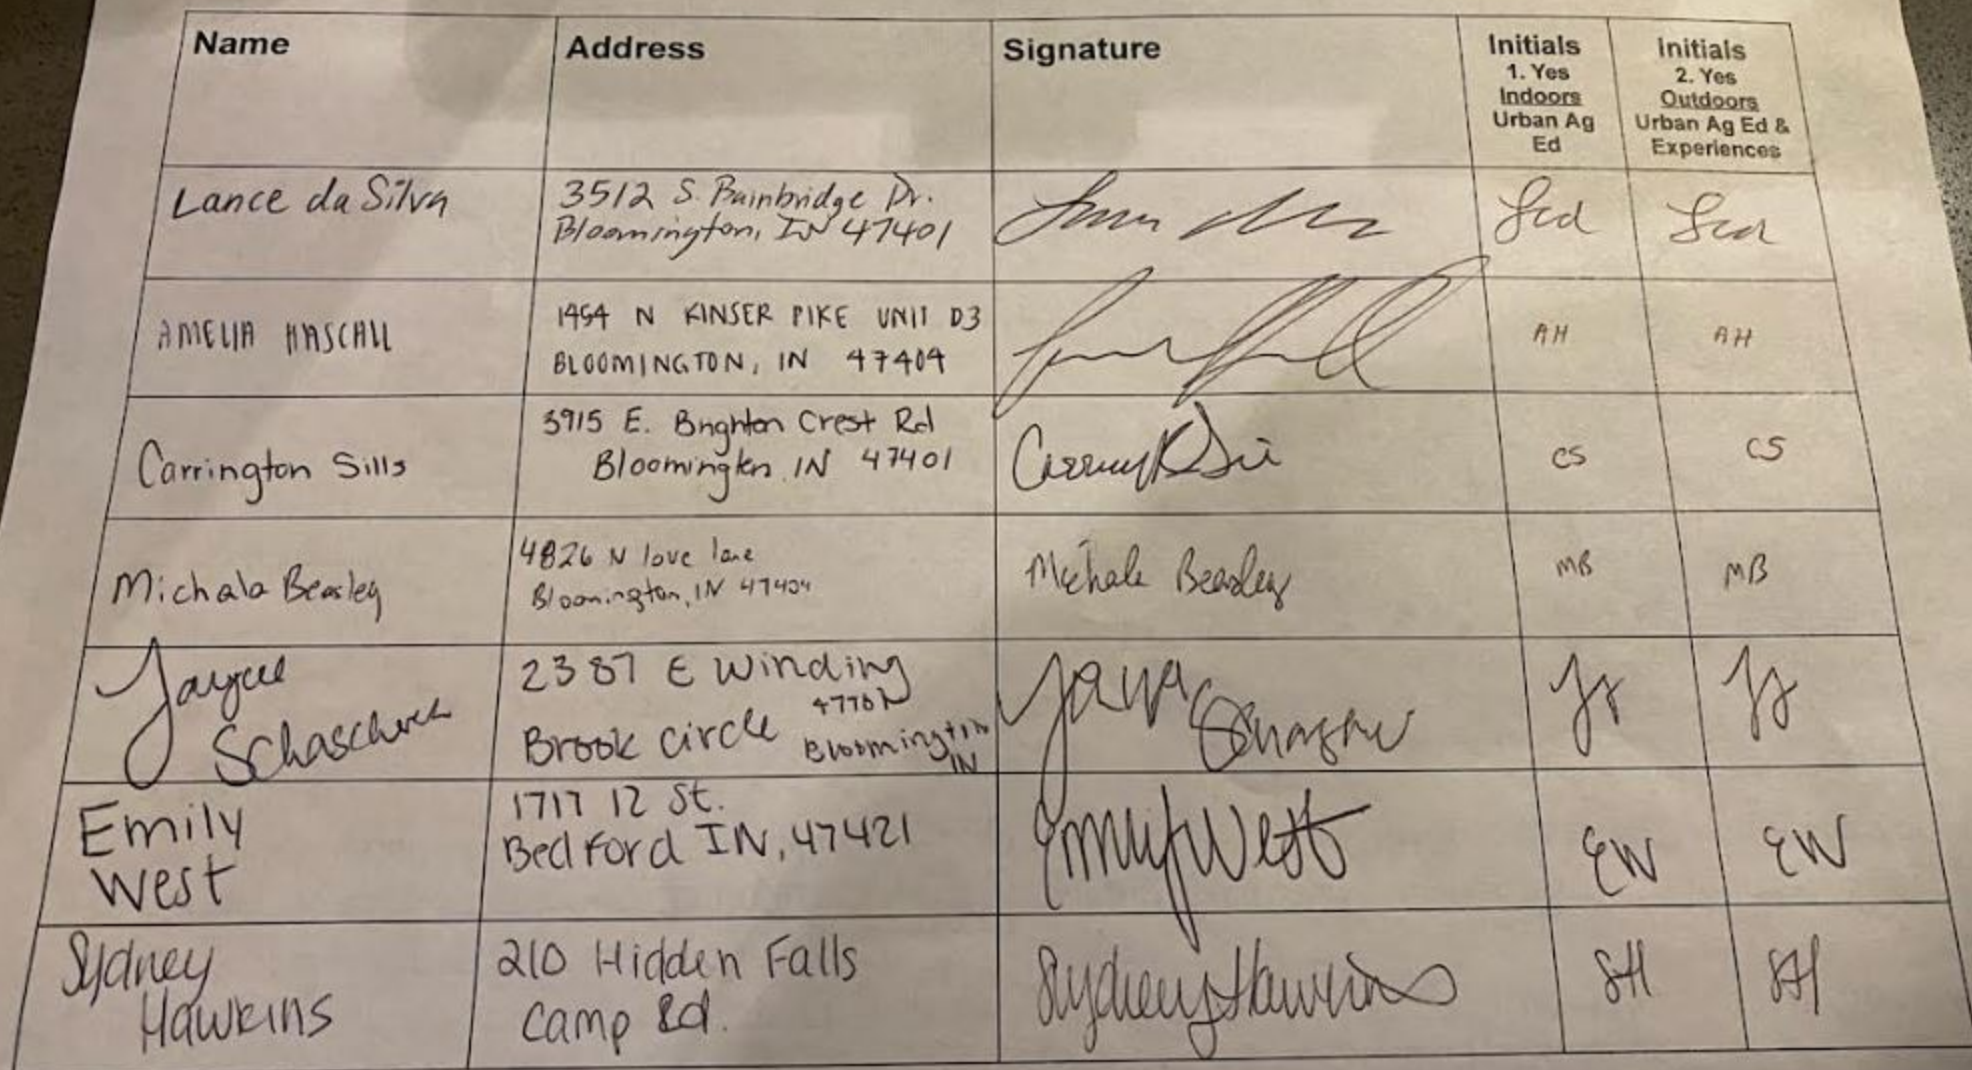 Name Address Signature Initials Initials
1. Yes 2. Yes
Indoors Outdoors
Urban Ag Urban Ag Ed &
Ed Experiences
Lance da Silva
3512 S. Bainbridge Dr.
Bloomington, IN 47401
AMELIA HASCALL
1454 N KINSER PIKE UNIT D3
BLOOMINGTON, IN 47404
AH AH
Carrington Sills
3915 E. Brighton Crest Rd
Bloomington IN 47401
CS CS
Michala Beasley
4826 N love lane
Bloomington, IN 47404
Michala Beasley
MB MB
Jaycee
2387 E Winding
Brook circle
Bloomington
IN
JS JS
Emily
West
1717 12 St.
Bedford IN, 47421
Emily West
EW EW
Sydney
Hawkins
210 Hidden Falls
Camp Rd.
Sydney Hawkins
SH SH